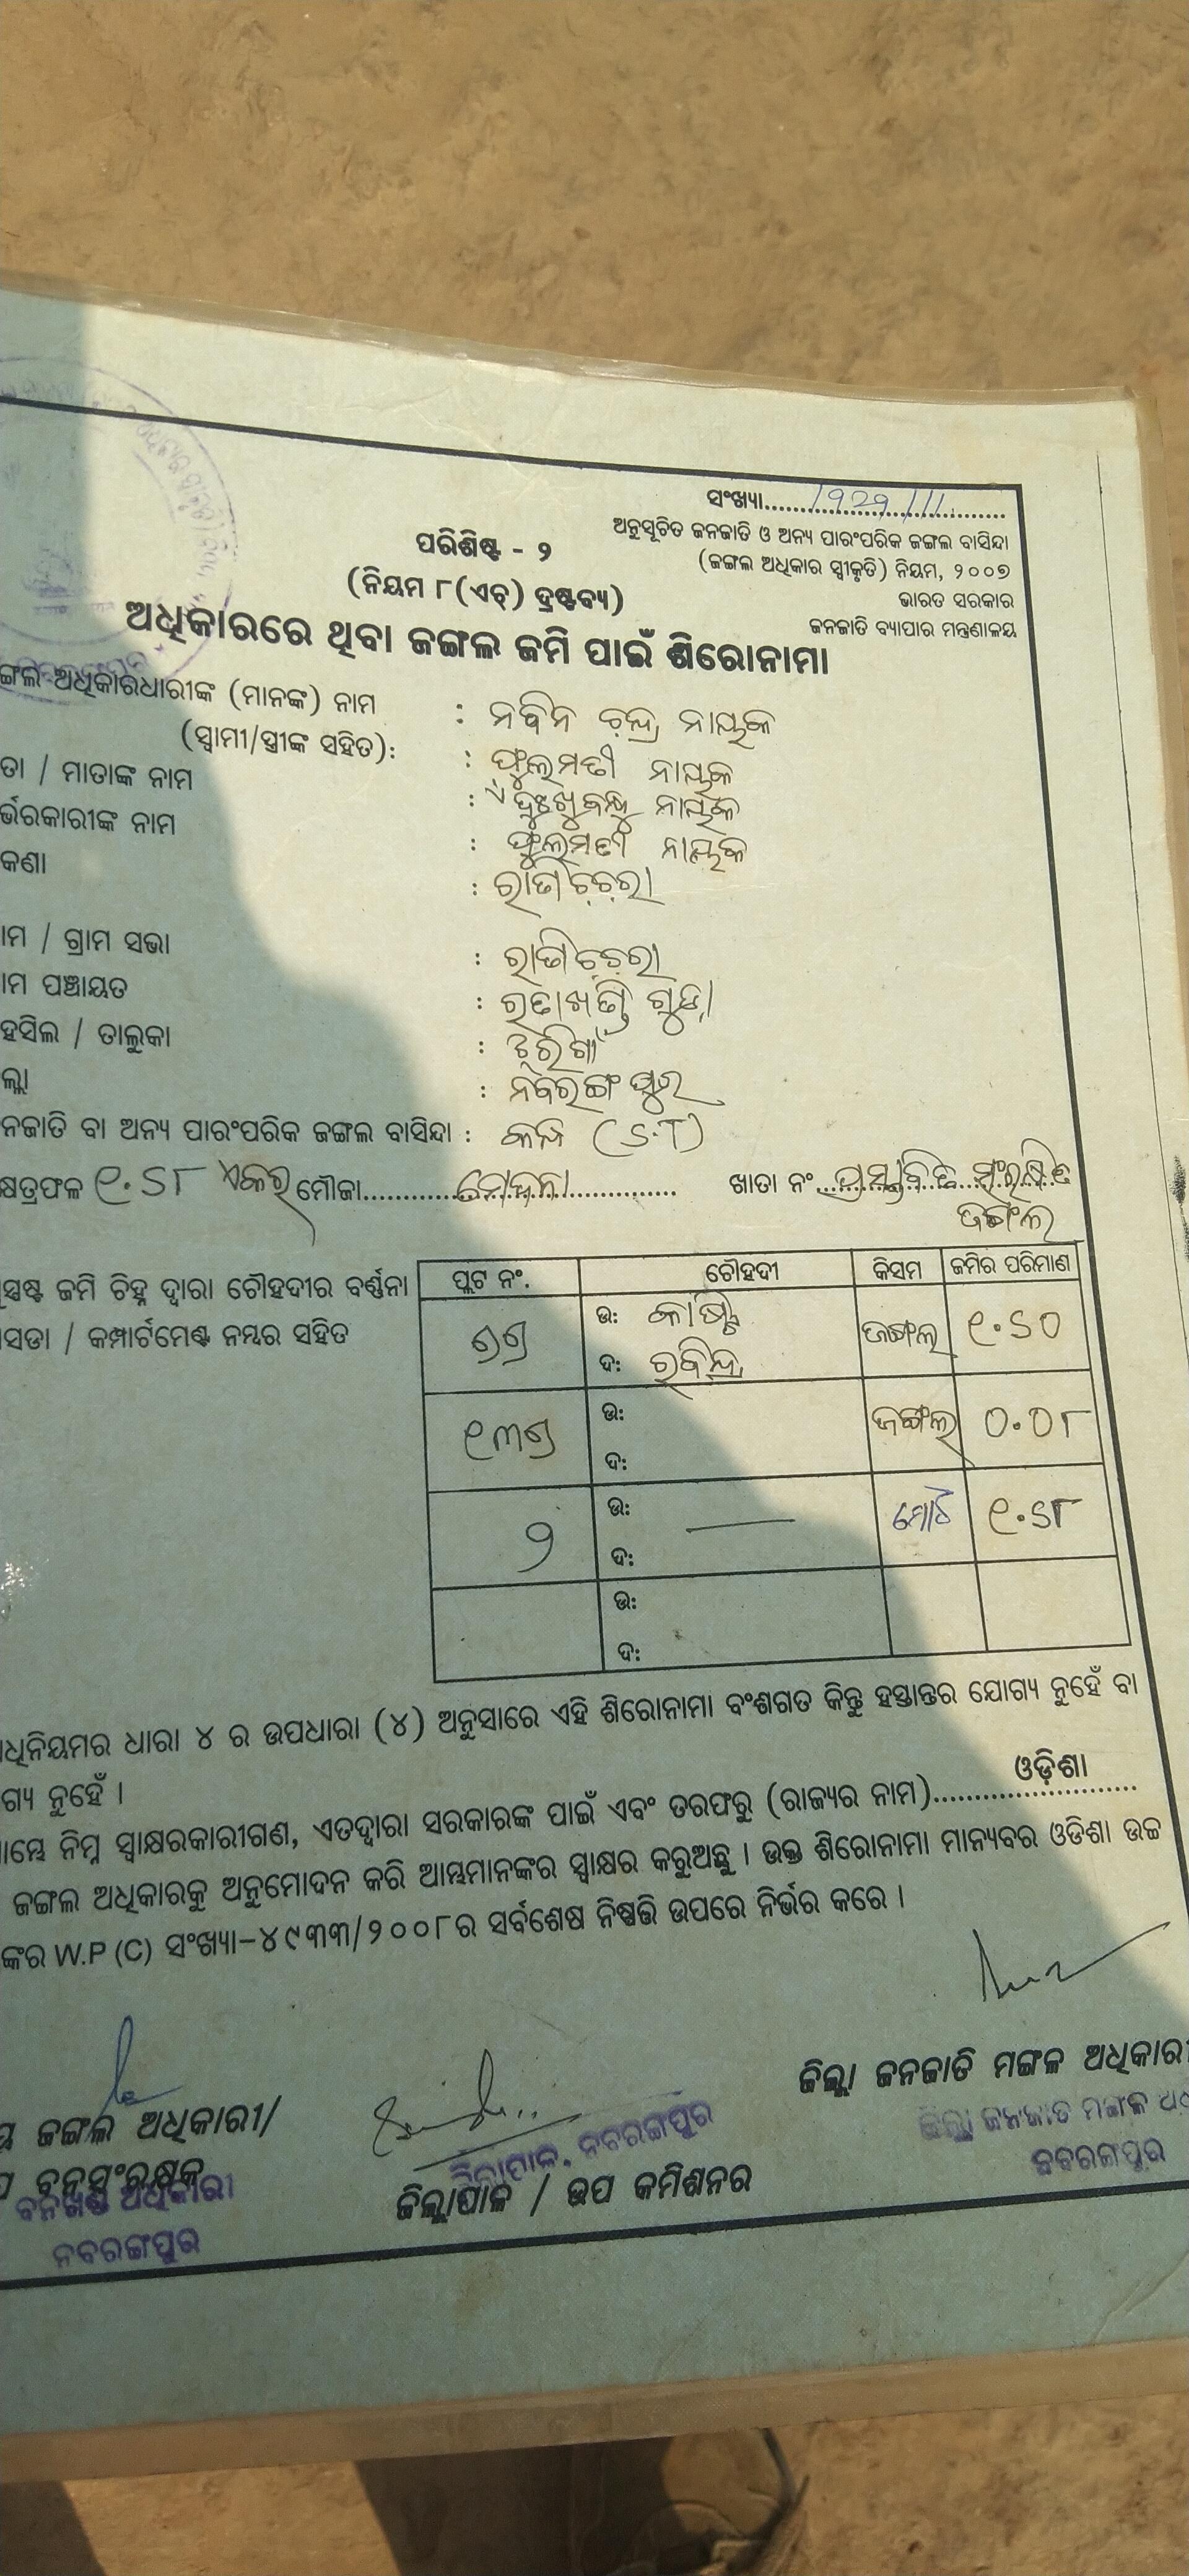 ସଂଖ୍ୟା.......1929/11.......
ଅନୁସୂଚିତ ଜନଜାତି ଓ ଅନ୍ୟ ପାରଂପରିକ ଜଙ୍ଗଲ ବାସିନ୍ଦା
ପରିଶିଷ୍ଟ - ୨
(ଜଙ୍ଗଲ ଅଧିକାର ସ୍ୱୀକୃତି) ନିୟମ, ୨୦୦୭
(ନିୟମ ୮(ଏଚ୍) ଦ୍ରଷ୍ଟବ୍ୟ)
ଭାରତ ସରକାର
ଜନଜାତି ବ୍ୟାପାର ମନ୍ତ୍ରଣାଳୟ
ଅଧିକାରରେ ଥିବା ଜଙ୍ଗଲ ଜମି ପାଇଁ ଶିରୋନାମା
ଙ୍ଗଲ ଅଧିକାରଧାରୀଙ୍କ (ମାନଙ୍କ) ନାମ : ନବିନ ଚନ୍ଦ୍ର ନାୟକ
(ସ୍ୱାମୀ/ସ୍ତ୍ରୀଙ୍କ ସହିତ): : ଫୁଲମତୀ ନାୟକ
ତା / ମାତାଙ୍କ ନାମ : ଦୁଃଖୁବନ୍ଧୁ ନାୟକ
ର୍ଭରକାରୀଙ୍କ ନାମ : ଫୁଲମତୀ ନାୟକ
କଣା :
ାମ / ଗ୍ରାମ ସଭା :
ାମ ପଞ୍ଚାୟତ :
ହସିଲ / ତାଲୁକା : ଝରିଗାଁ
ଲ୍ଲା : ନବରଙ୍ଗପୁର
ନଜାତି ବା ଅନ୍ୟ ପାରଂପରିକ ଜଙ୍ଗଲ ବାସିନ୍ଦା : କନ୍ଧ (S.T)
କ୍ଷତ୍ରଫଳ ୧.୬୮ ଏକର ମୌଜା.......... ଖାତା ନଂ ପ୍ରସ୍ତାବିତ ସଂରକ୍ଷିତ
ଜଙ୍ଗଲ
ସ୍ପଷ୍ଟ ଜମି ଚିହ୍ନ ଦ୍ୱାରା ଚୌହଦୀର ବର୍ଣ୍ଣନା
ସଡା / କମ୍ପାର୍ଟମେଣ୍ଟ ନମ୍ବର ସହିତ
ପ୍ଲଟ ନଂ. ଚୌହଦୀ କିସମ ଜମିର ପରିମାଣ
୭୭ ଉ: ଜଙ୍ଗଲ ୧.୬୦
ଦ: ରବିନ୍ଦ୍ର
୧୩୭ ଉ: ଜଙ୍ଗଲ ୦.୦୮
ଦ:
୨ ଉ: — ମୋଟ ୧.୬୮
ଦ:
ଉ:
ଦ:
ଧିନିୟମର ଧାରା ୪ ର ଉପଧାରା (୪) ଅନୁସାରେ ଏହି ଶିରୋନାମା ବଂଶଗତ କିନ୍ତୁ ହସ୍ତାନ୍ତର ଯୋଗ୍ୟ ନୁହେଁ ବା
ଗ୍ୟ ନୁହେଁ ।
ାମ୍ଭେ ନିମ୍ନ ସ୍ୱାକ୍ଷରକାରୀଗଣ, ଏତଦ୍ୱାରା ସରକାରଙ୍କ ପାଇଁ ଏବଂ ତରଫରୁ (ରାଜ୍ୟର ନାମ)....ଓଡ଼ିଶା....
ଜଙ୍ଗଲ ଅଧିକାରକୁ ଅନୁମୋଦନ କରି ଆମ୍ଭମାନଙ୍କର ସ୍ୱାକ୍ଷର କରୁଅଛୁ । ଉକ୍ତ ଶିରୋନାମା ମାନ୍ୟବର ଓଡିଶା ଉଚ୍ଚ
ଙ୍କର W.P (C) ସଂଖ୍ୟା-୪୯୩୩/୨୦୦୮ର ସର୍ବଶେଷ ନିଷ୍ପତ୍ତି ଉପରେ ନିର୍ଭର କରେ ।
ଜିଲ୍ଲା ଜନଜାତି ମଙ୍ଗଳ ଅଧିକାରୀ
ଜିଲ୍ଲା ଜନଜାତି ମଙ୍ଗଳ
ନବରଙ୍ଗପୁର
ୟ ଜଙ୍ଗଲ ଅଧିକାରୀ/
ବନସଂରକ୍ଷକ
ବନଖଣ୍ଡ ଅଧିକାରୀ
ନବରଙ୍ଗପୁର
ଜିଲ୍ଲାପାଳ, ନବରଙ୍ଗପୁର
ଜିଲ୍ଲାପାଳ / ଉପ କମିଶନର